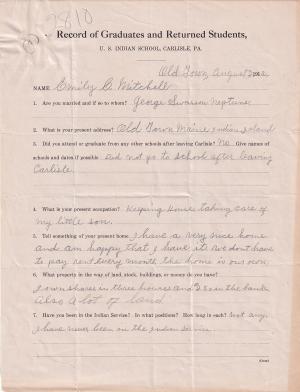 2810
Record of Graduates and Returned Students,
U. S. INDIAN SCHOOL, CARLISLE, PA.
Old Town, August
NAME Emily C Mitchell
1. Are you married and if so to whom? George Swasson Neptune
2. What is your present address? Old Town Maine Indian Island
3. Did you attend or graduate from any other schools after leaving Carlisle? No Give names of
schools and dates if possible did not go to school after leaving
Carlisle.
4. What is your present occupation? Keeping House taking care of
my little son.
5. Tell something of your present home I have a very nice home
and am happy that I have it. We dont have
to pay rent every month the home is our own.
6. What property in the way of land, stock, buildings, or money do you have?
I own shares in three houses and in the bank
Also a lot of land.
7. Have you been in the Indian Service? In what positions? How long in each? Not any
I have never been on the Indian Service
(Over)